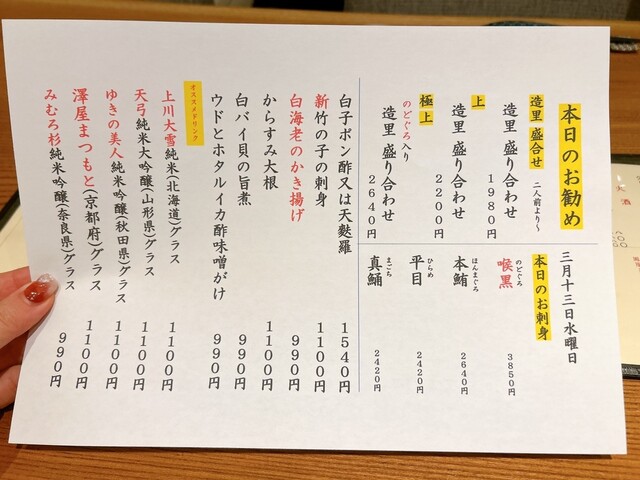 本日のお勧め
造里 盛合せ 二人前より~
造里 盛り合わせ
1980円
上
造里 盛り合わせ
2200円
極上
のどぐろ入り
造里 盛り合わせ
2640円
三月十三日水曜日
本日のお刺身
のどぐろ
喉黒
3850円
ほんまぐろ
本鮪
2640円
ひらめ
平目
2420円
まごち
真鯒
2420円
白子ポン酢又は天麩羅
1540円
新竹の子の刺身
1100円
白海老のかき揚げ
990円
からすみ大根
1100円
白バイ貝の旨煮
990円
ウドとホタルイカ酢味噌がけ
990円
オススメドリンク
上川大雪純米(北海道)グラス
1100円
天弓純米大吟醸(山形県)グラス
1100円
ゆきの美人純米吟醸(秋田県)グラス
1100円
澤屋まつもと(京都府)グラス
1100円
みむろ杉純米吟醸(奈良県)グラス
990円